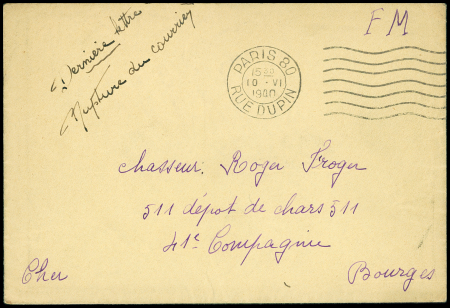 Dernière lettre
Rupture du courrier
FM
PARIS 80
15
10 - VI
1940
RUE DUPIN
chasseur. Roger Froger
511 dépôt de chars 511
41e Compagnie
Cher Bourges